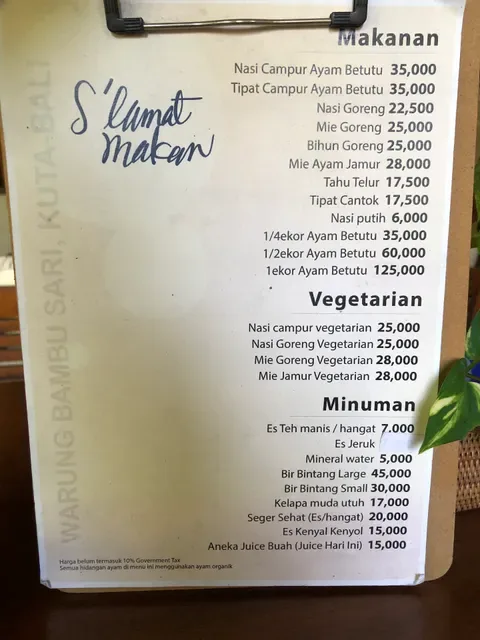 Makanan
S'lamat
makan
Nasi Campur Ayam Betutu 35,000
Tipat Campur Ayam Betutu 35,000
Nasi Goreng 22,500
Mie Goreng 25,000
Bihun Goreng 25,000
Mie Ayam Jamur 28,000
Tahu Telur 17,500
Tipat Cantok 17,500
Nasi putih 6,000
1/4ekor Ayam Betutu 35,000
1/2ekor Ayam Betutu 60,000
1ekor Ayam Betutu 125,000
Vegetarian
Nasi campur vegetarian 25,000
Nasi Goreng Vegetarian 25,000
Mie Goreng Vegetarian 28,000
Mie Jamur Vegetarian 28,000
Minuman
Es Teh manis / hangat 7.000
Es Jeruk
Mineral water 5,000
Bir Bintang Large 45,000
Bir Bintang Small 30,000
Kelapa muda utuh 17,000
Seger Sehat (Es/hangat) 20,000
Es Kenyal Kenyol 15,000
Aneka Juice Buah (Juice Hari Ini) 15,000
Harga belum termasuk 10% Government Tax
Semua hidangan ayam di menu ini menggunakan ayam organik
WARUNG BAMBU SARI, KUTA-BALI